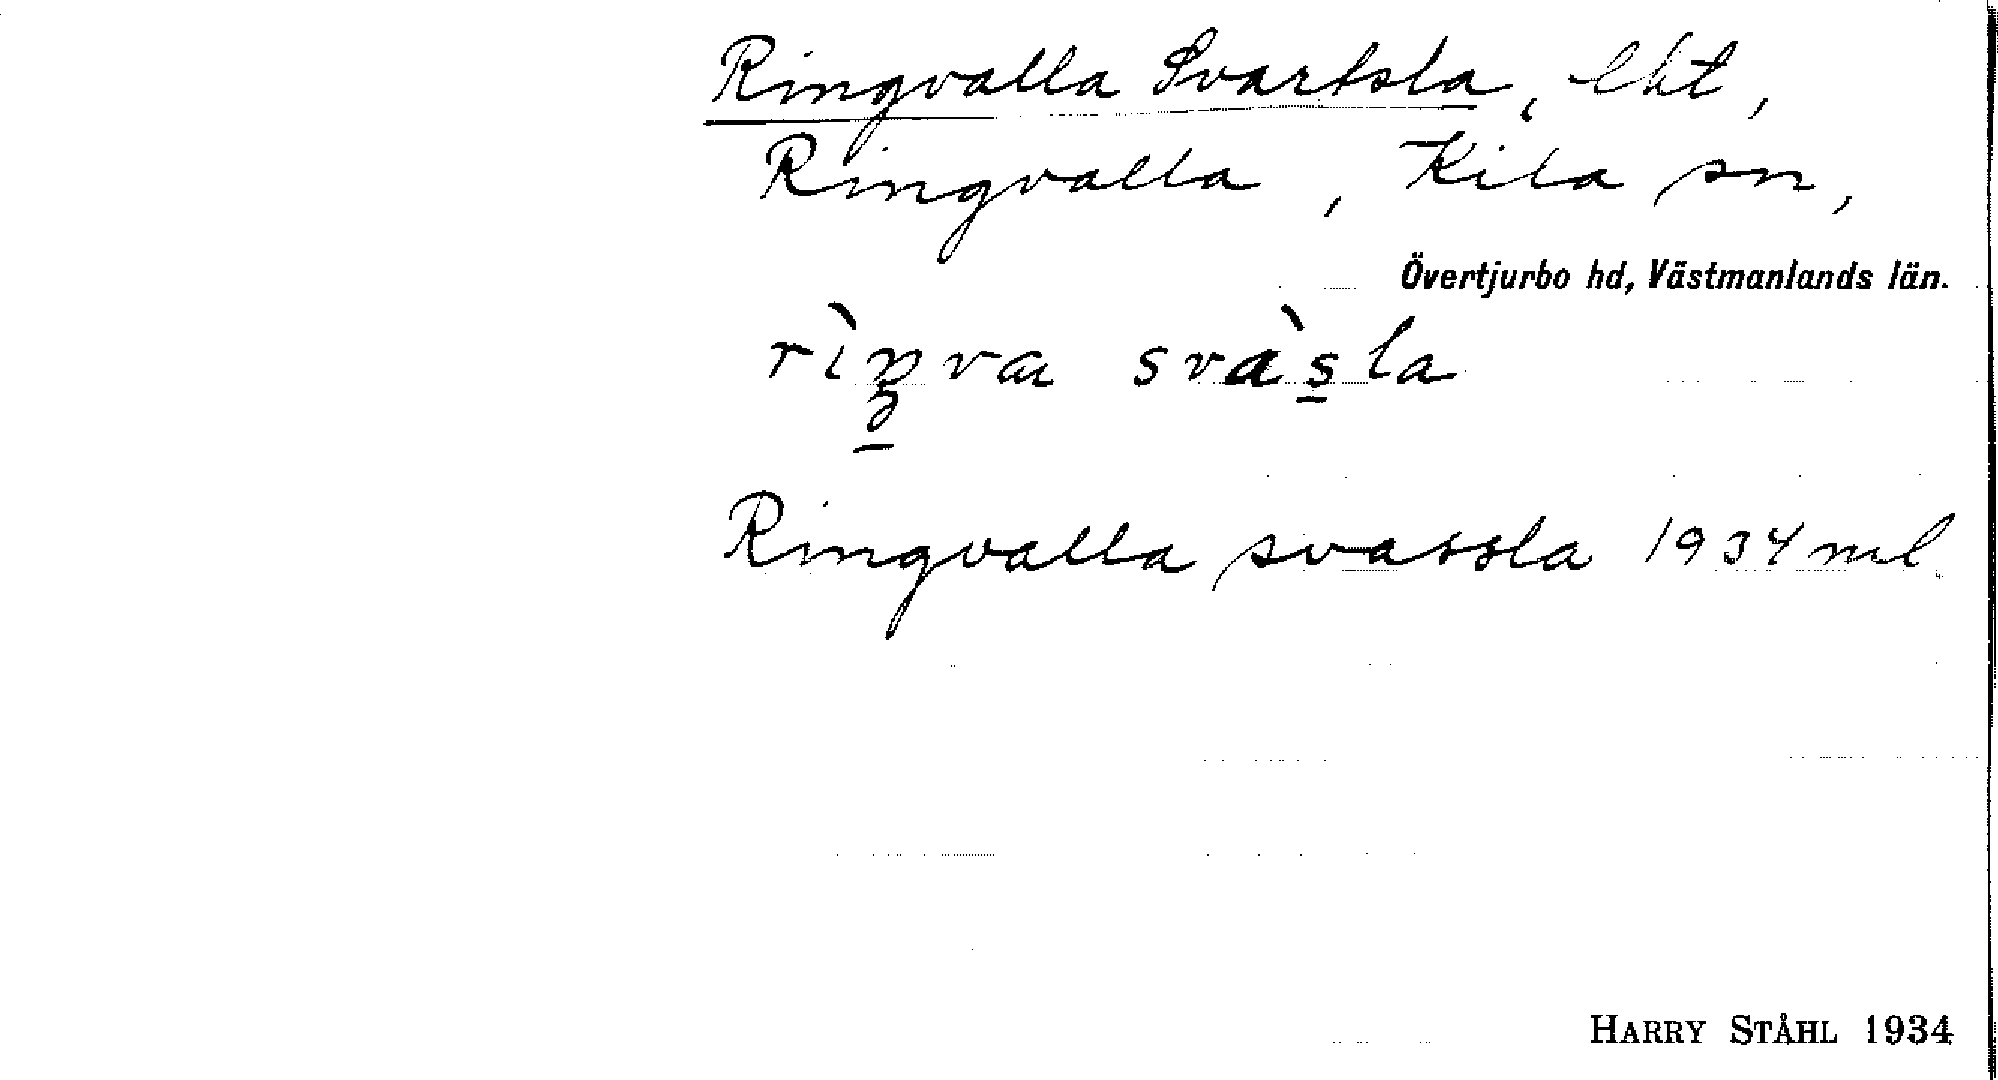 Ringvalla Svartsla, lht,
Ringvalla, Kila sn,
Övertjurbo hd, Västmanlands län.
rìŋva svàsla
Ringvalla svassla 1934 ml
HARRY STÅHL 1934